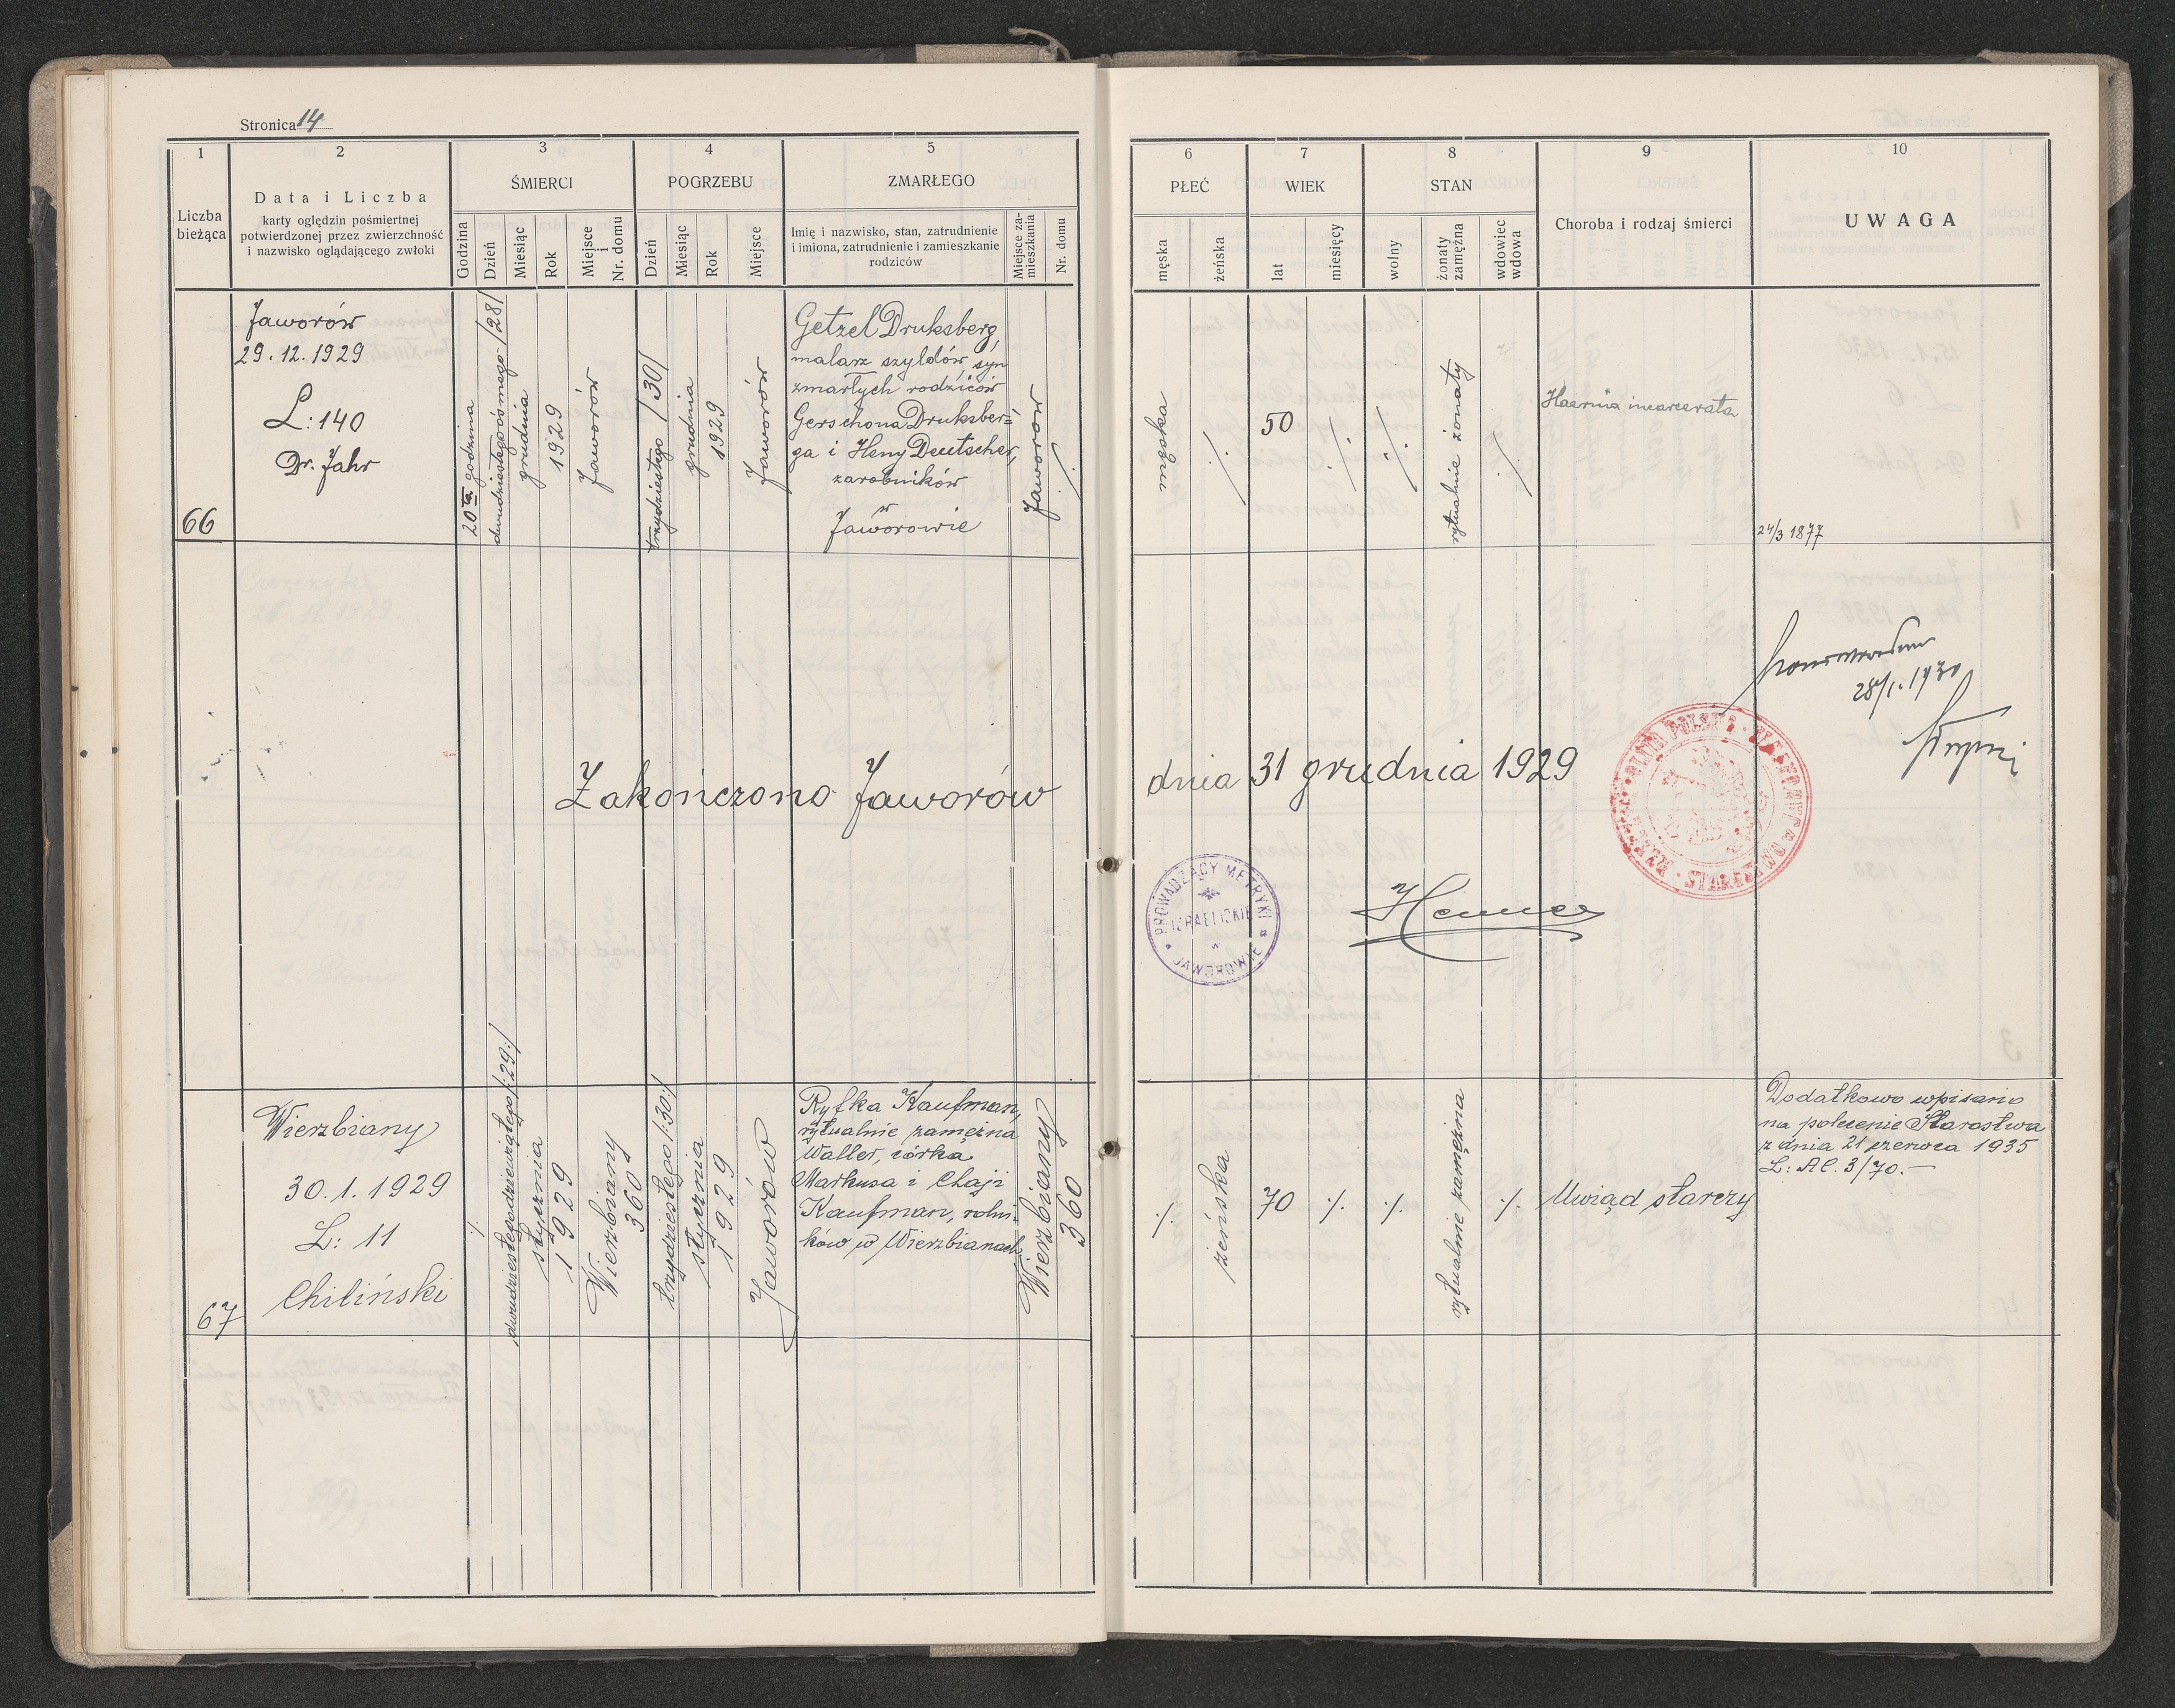 Stronica 14
1
2
3
4
5
Liczba
bieżąca
Data i Liczba
karty oględzin pośmiertnej
potwierdzonej przez zwierzchność
i nazwisko oglądającego zwłoki
ŚMIERCI
Godzina
Dzień
Miesiąc
Rok
Miejsce
i
Nr. domu
POGRZEBU
Dzień
Miesiąc
Rok
Miejsce
ZMARŁEGO
Imię i nazwisko, stan, zatrudnienie
i imiona, zatrudnienie i zamieszkanie
rodziców
Miejsce za-
mieszkania
Nr. domu
6
7
8
9
10
PŁEĆ
męska
żeńska
WIEK
lat
miesięcy
STAN
wolny
żonaty
zamężna
wdowiec
wdowa
Choroba i rodzaj śmierci
UWAGA
66
Jaworów
29.12.1929
L: 140
Dr. Jahr
20ta godzina
dwudziestegoósmego /28/
grudnia
1929
Jaworów
trzydziestego /30/
grudnia
1929
Jaworów
Getzel Druksberg,
malarz szyldów, syn
zmarłych rodziców
Gerschona Druksber=
ga i Heny Deutscher,
zarobników
w
Jaworowie
Jaworów
./.
męska
./.
50
./.
./.
rytualnie żonaty
./.
Haernia incarcerata
24/3 1877
28/1. 1930
Zakończono Jaworów dnia 31 grudnia 1929
PROWADZĄCY METRYKI
IZRAELICKIE
w
JAWOROWIE
67
Wierzbiany
30.1.1929
L: 11
Chiliński
./.
dwudziestegodziewiątego /:29:/
stycznia
1929
Wierzbiany
360
trzydziestego /:30:/
stycznia
1929
Jaworów
Ryfka Kaufman,
rytualnie zamężna
Waller, córka
Markusa i Chaji
Kaufman, rolni-
ków w Wierzbianach
Wierzbiany
360
./.
żeńska
70
./.
./.
rytualnie zamężna
./.
Uwiąd starczy
Dodatkowo wpisano
na polecenie Starostwa
z dnia 21 czerwca 1935
L: Al. 3/70.—